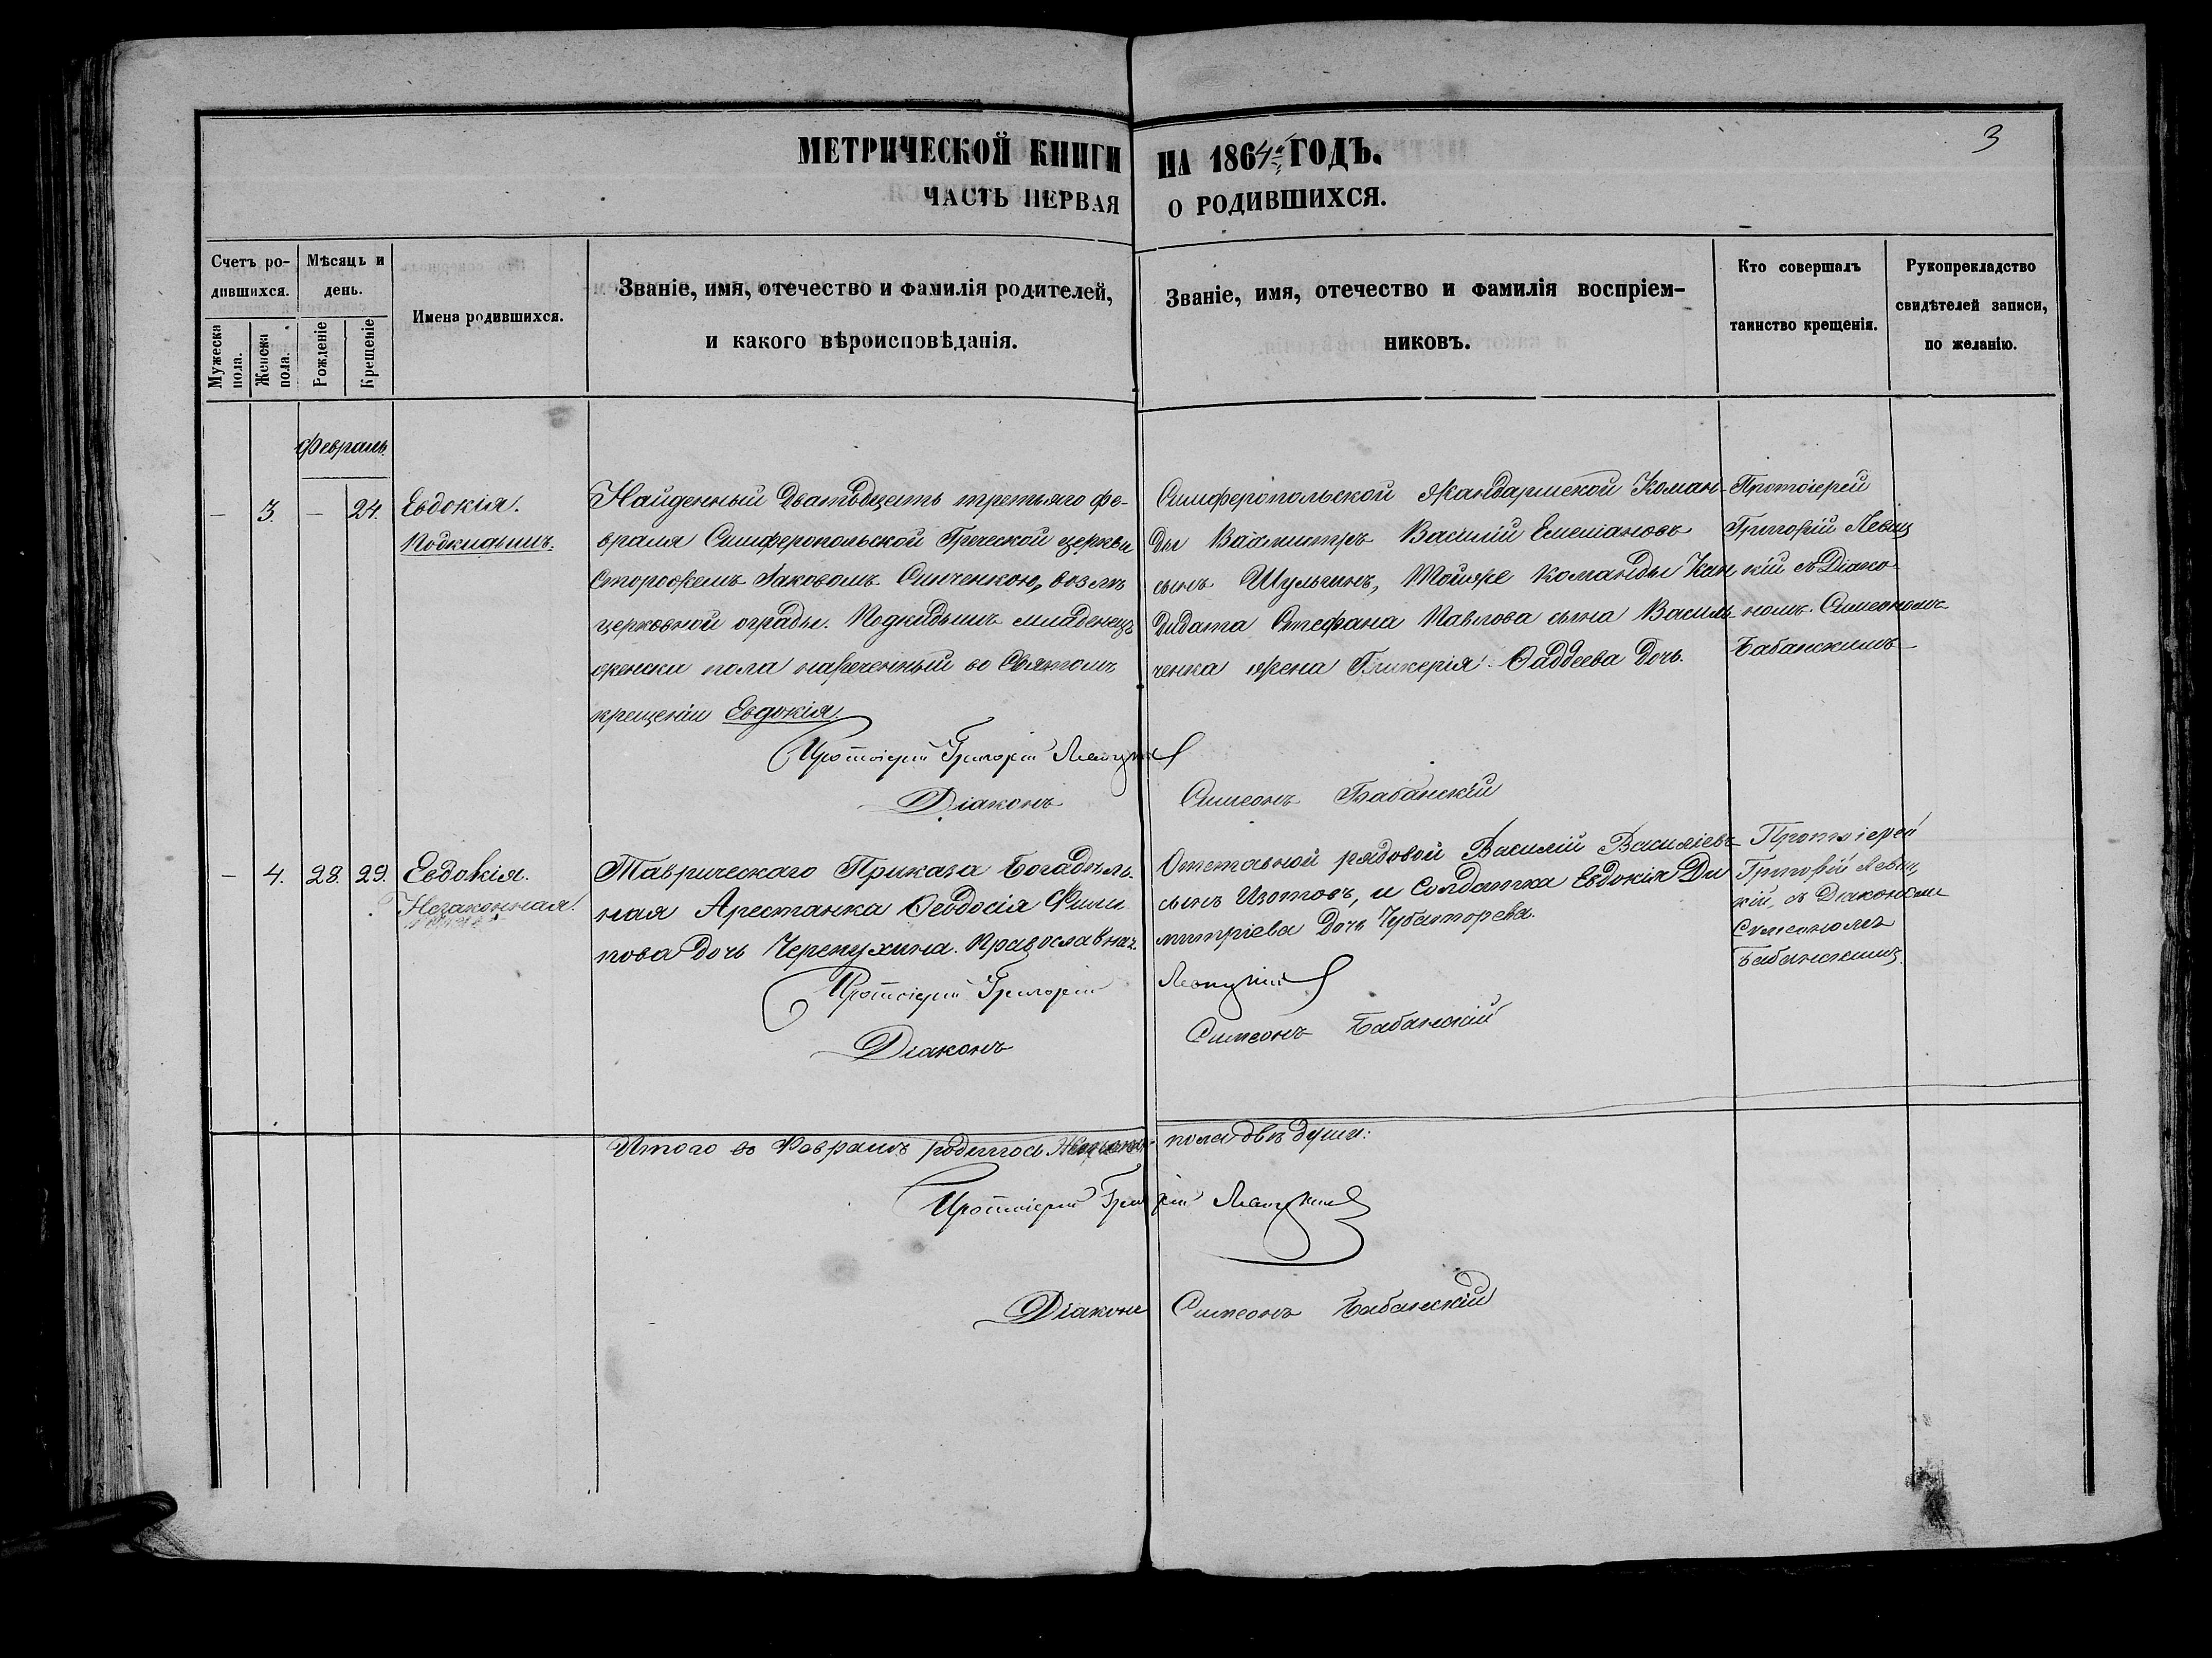 3
МЕТРИЧЕСКОЙ КНИГИ НА 1864й ГОДЪ.
ЧАСТЬ ПЕРВАЯ О РОДИВШИХСЯ.
Счетъ ро-
дившихся.
Мужеска
пола.
Женска
пола.
Мѣсяць и
день.
Рожденіе
Крещеніе
Имена родившихся.
Званіе, имя, отечество и фамилія родителей,
и какого вѣроисповѣданія.
Званіе, имя, отечество и фамилія воспріем-
никовъ.
Кто совершалъ
таинство крещенія.
Рукоприкладство
свидѣтелей записи,
по желанію.
Февраль
— 3. — 24.
Евдокія.
Подкидышъ.
Найденный Двадцать третьяго фе-
враля Симферопольской Греческой церкви
Сторожемъ Іаковомъ Синченкою, возлѣ
церковной ограды. Подкидышъ младенецъ
женска пола нареченный во Святомъ
крещеніи Евдокія.
Симферопольской Жандармской Коман-
ды Вахмистръ Василій Емеліановъ
сынъ Шульгинъ, Тойже Команды Кан
дидата Стефана Павлова сына Василь-
ченка жена Гликерія Фаддеева Дочь.
Протоіерей
Григорій Левиц
кій съ Діако-
номъ Симеономъ
Бабанскимъ
Протоіерей Григорій Левицкій
Діаконъ Симеонъ Бабанскій
— 4. 28. 29.
Евдокія.
Незаконная.
Таврическаго Приказа Богадѣль-
ная Арестанка Феодосія Фили
пова Дочь Черепухина. Православная.
Отставной рядовой Василій Василіевъ
сынъ Изотовъ, и Солдатка Евдокія Ди
митріева Дочь
Протоіерей
Григорій Левиц
кій, съ Діакономъ
Симеономъ
Бабанскимъ.
Протоіерей Григорій Левицкій
Діаконъ Симеонъ Бабанскій
Итого во Февралѣ родилось Женска пола двѣ души:
Протоіерей Григорій Левицкій
Діаконъ Симеонъ Бабанскій